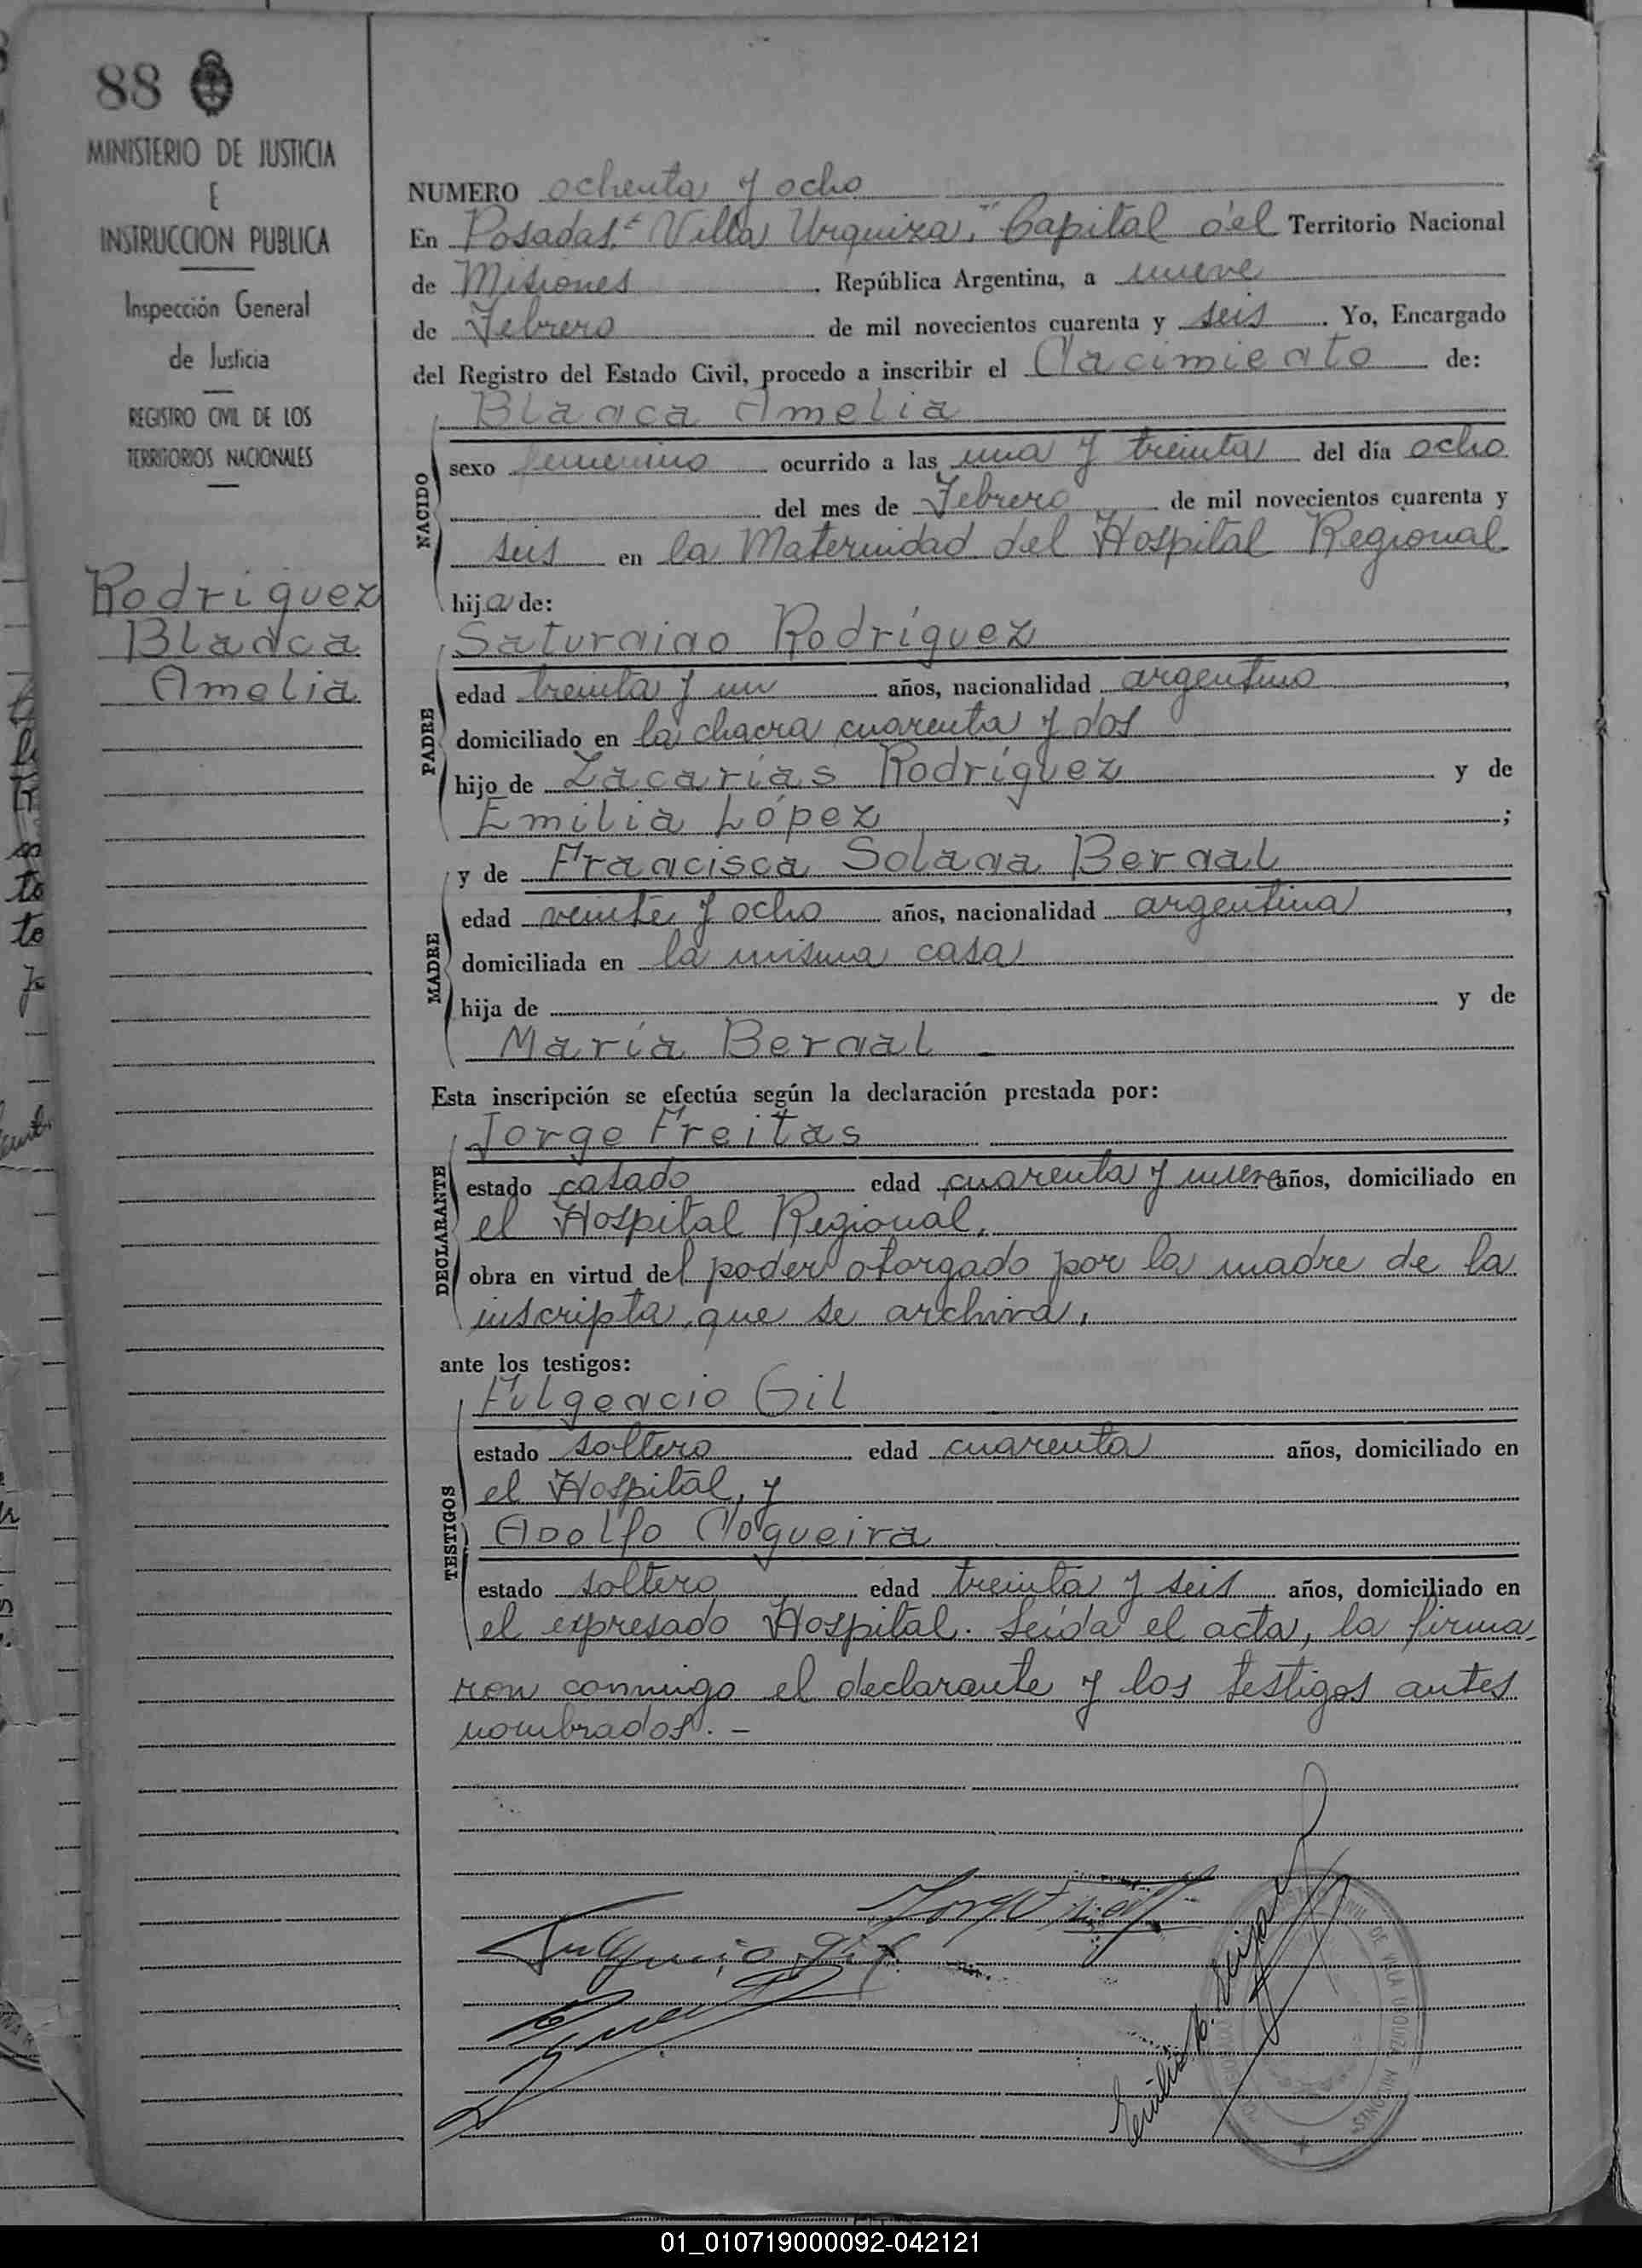 88
MINISTERIO DE JUSTICIA
E
INSTRUCCION PUBLICA
Inspección General
de Justicia
REGISTRO CIVIL DE LOS
TERRITORIOS NACIONALES
Rodríguez
Blanca
Amelia
NUMERO ochenta y ocho
En Posadas "Villa Urquiza," Capital del Territorio Nacional
de Misiones . República Argentina, a nueve
de Febrero de mil novecientos cuarenta y seis . Yo, Encargado
del Registro del Estado Civil, procedo a inscribir el Nacimiento de:
Blanca Amelia
NACIDO
sexo femenino ocurrido a las una y treinta del día ocho
del mes de Febrero de mil novecientos cuarenta y
seis en la Maternidad del Hospital Regional
hija de:
Saturnino Rodríguez
PADRE
edad treinta y un años, nacionalidad argentino ,
domiciliado en la chacra cuarenta y dos
hijo de Zacarías Rodríguez y de
Emilia López ;
y de Francisca Solana Bernal
MADRE
edad veinte y ocho años, nacionalidad argentina ,
domiciliada en la misma casa
hija de y de
María Bernal
Esta inscripción se efectúa según la declaración prestada por:
Jorge Freitas
DECLARANTE
estado casado edad cuarenta y nueve años, domiciliado en
el Hospital Regional,
obra en virtud del poder otorgado por la madre de la
inscripta, que se archiva,
ante los testigos:
Fulgencio Gil
TESTIGOS
estado soltero edad cuarenta años, domiciliado en
el Hospital, y
Adolfo Nogueira
estado soltero edad treinta y seis años, domiciliado en
el expresado Hospital. Leída el acta, la firma-
ron conmigo el declarante y los testigos antes
nombrados. -
Fulgencio Gil
CIVIL DE VILLA URQUIZA MISIONES
01_010719000092-042121